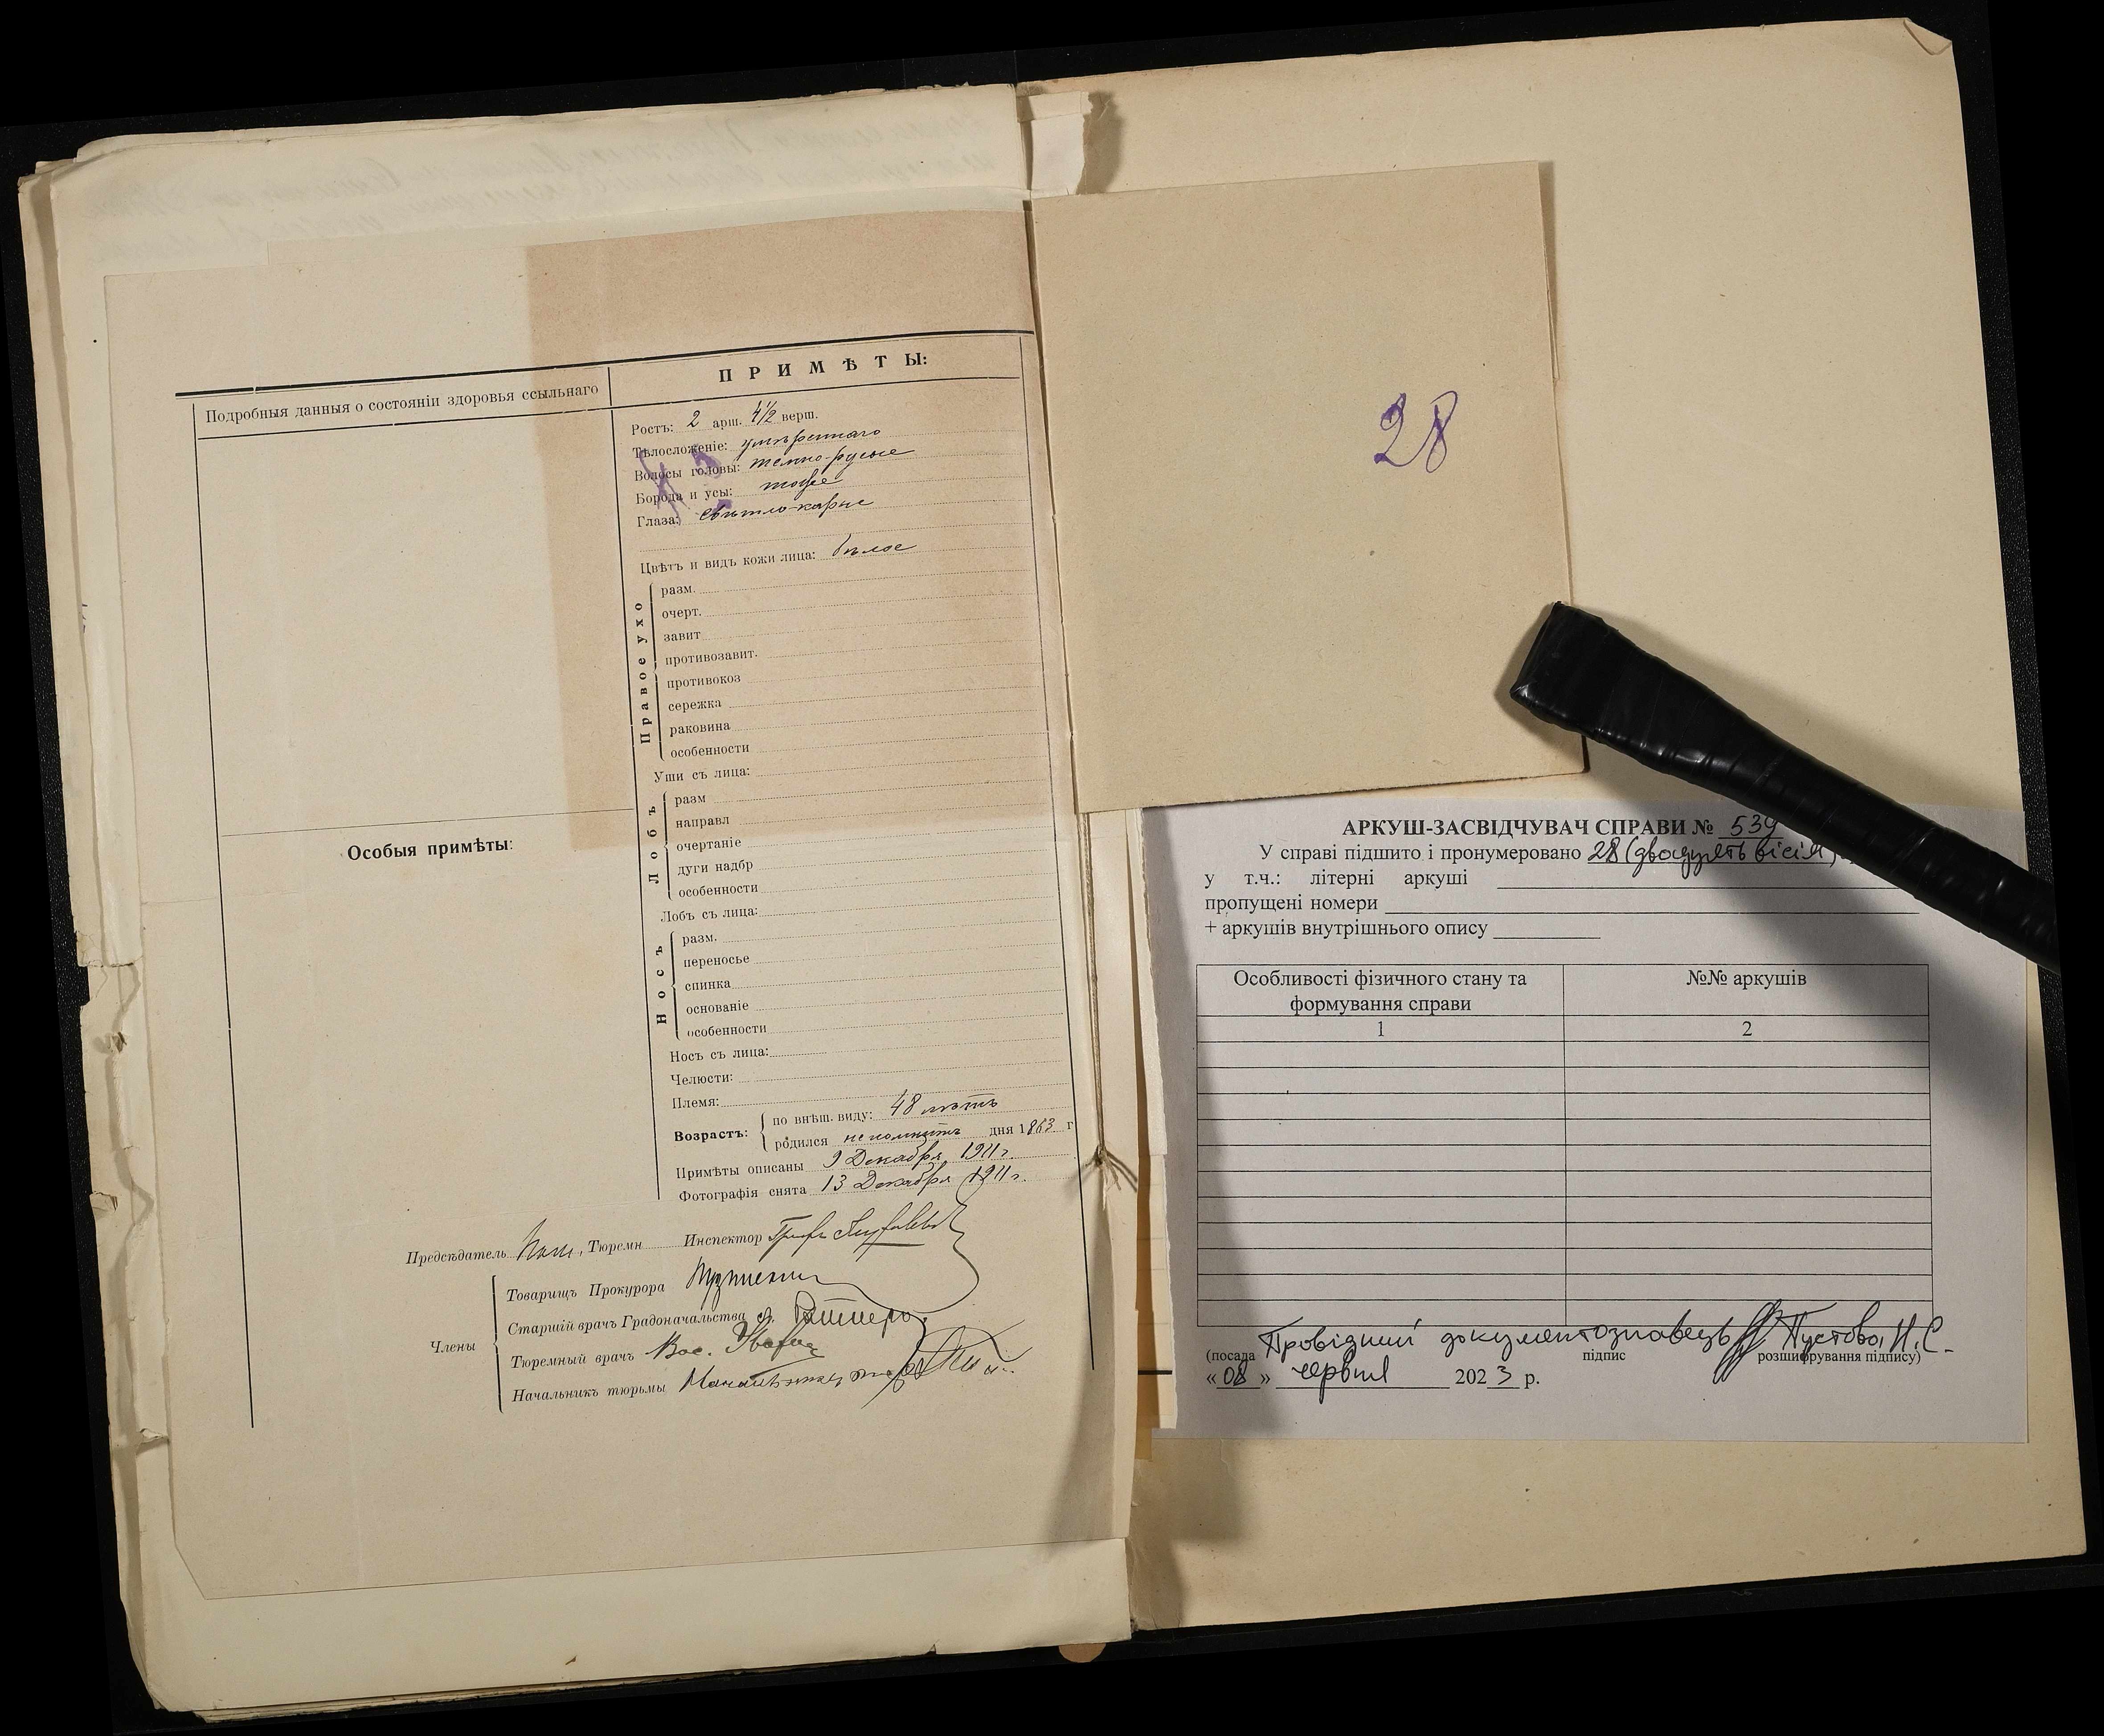 Подробныя данныя о состоянiи здоровья ссыльнаго
П Р И М Ѣ Т Ы:
Ростъ: 2 арш. 4½ верш.
Тѣлосложенiе: умѣреннаго
Волосы головы: темно-русые
Борода и усы: тоже
Глаза: свѣтло-карие
Цвѣтъ и видъ кожи лица: бѣлое
Правое ухо
разм.
очерт.
завит
противозавит.
противокоз
сережка
раковина
особенности
Уши съ лица:
Лобъ
разм
направл
очертанiе
дуги надбр
особенности
Лобъ съ лица:
Носъ
разм.
переносье
спинка
основанiе
особенности
Носъ съ лица:
Челюсти:
Племя:
Возрастъ:
по внѣш. виду: 48 лѣтъ
родился не помнитъ дня 1863 г
Примѣты описаны 9 Декабря 1911 г.
Фотографiя снята 13 Декабря 1911 г.
Особыя примѣты:
Предсѣдатель Тюремн Инспекторъ
Члены
Товарищъ Прокурора
Старшiй врачъ Градоначальства
Тюремный врачъ
Начальникъ тюрьмы
28
АРКУШ-ЗАСВІДЧУВАЧ СПРАВИ № 539
У справі підшито і пронумеровано 28 (двадцять вісім)
у т.ч.: літерні аркуші
пропущені номери
+ аркушів внутрішнього опису
Особливості фізичного стану та формування справи
№№ аркушів
1 2
Провідний документознавець Пустова Н.С.
(посада підпис розшифрування підпису)
«08» червня 2023 р.